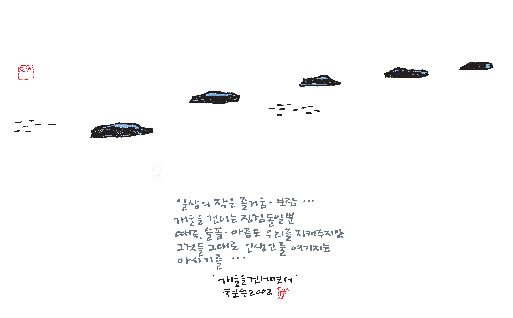 일상의 작은 즐거움·보람 ...
개울을 건너는 징검돌일뿐
때로, 슬픔·아픔도 우리를 지켜주지만
그것들 그대로 인생안를 여기지는
마시기를 ...
"개울을 건너면서"
2003